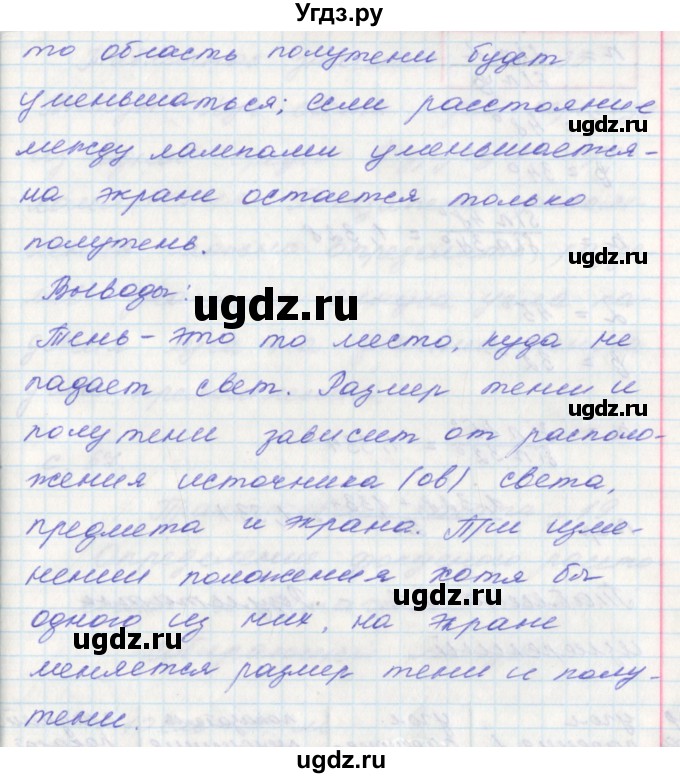 Угдз.ру
то область полутени будет
уменьшаться; если расстояние
ugdz.ru
между лампами уменьшается-
на экране остается только
полутень.
ugdz.ru
Выводы:
ugdz.ru
Тень - это то место, куда не
падает свет. Размер тени и
ugdz.ru
полутени зависит от располо-
жения источника (ов) света,
предмета и экрана. При изме-
нении положения хотя бы
ugdz.ru
одного из них, на экране
ugdz.ru
меняется размер тени и полу-
тени.
ugdz.ru